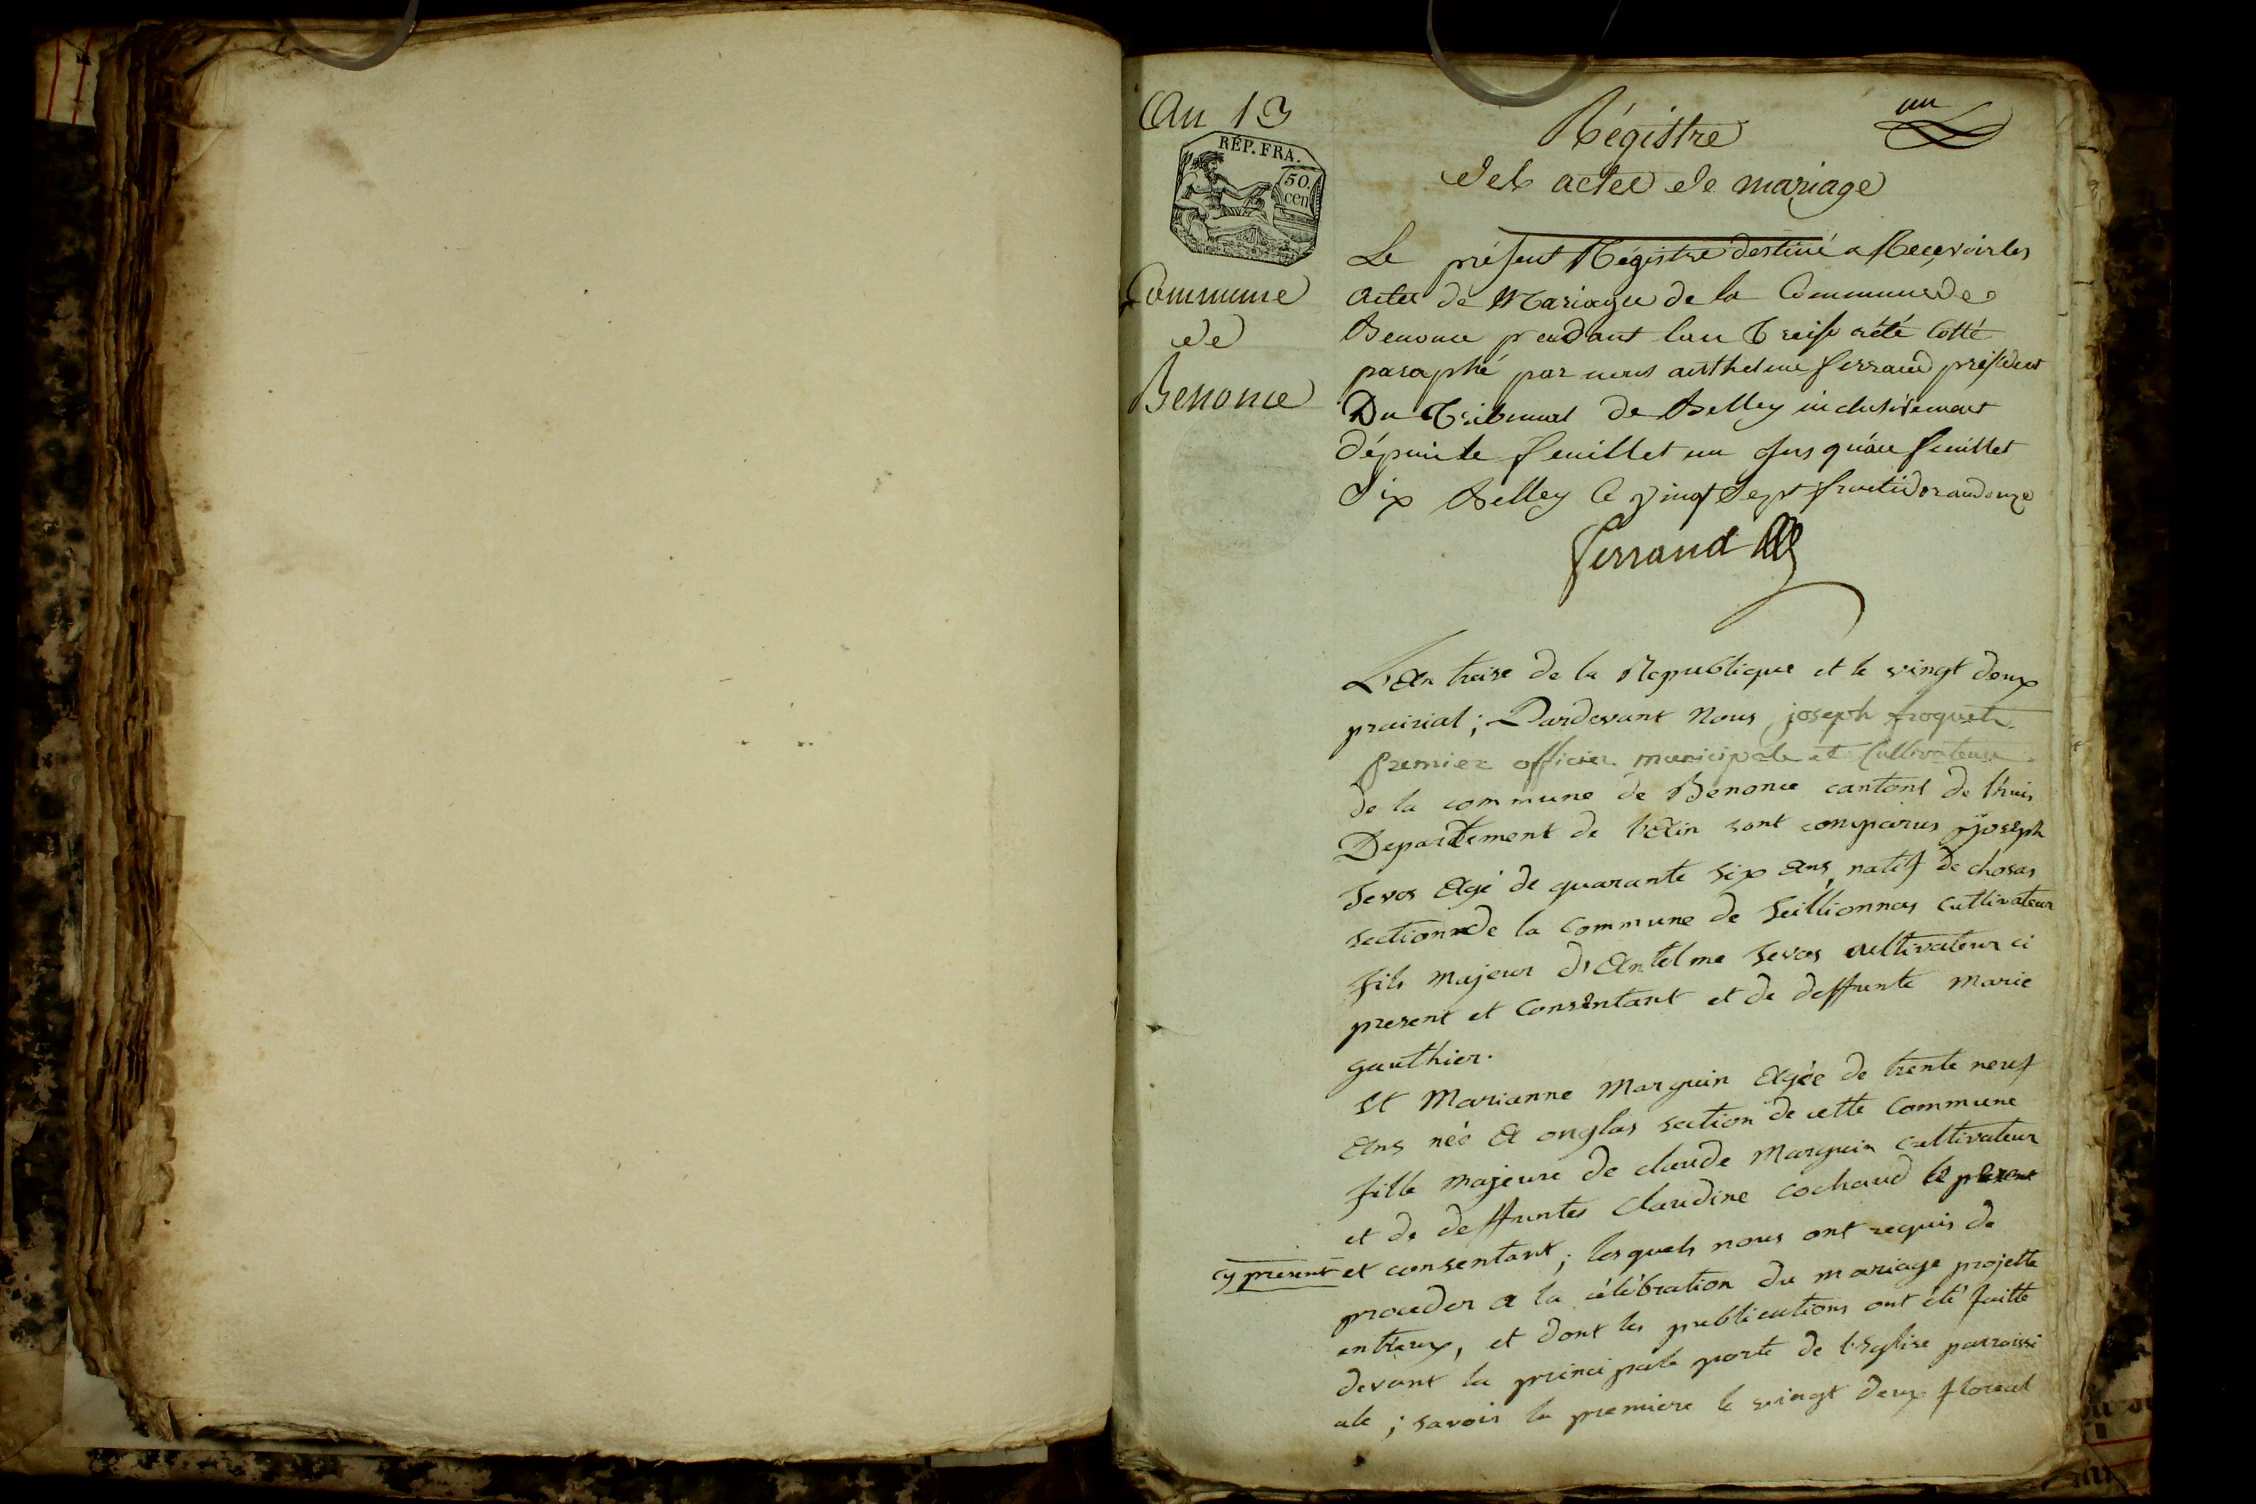 An 13
un
RÉP. FRA.
50
cen
Commune
de
Benonce
Régistre
des actes de mariage
Le présent Régistre destiné a Recevoir les
actes de Mariages de la Commune de
Benonce pendant l'an Treise a été Cotté
paraphé par nous anthelme ferrand président
Du Tribunal de Belley inclusivement
dépuis le feuillet un jusqu'au feuillet
Six Belley le vingt Sept fructidor an douze
ferrand
L'An treise de la Republique et le vingt deux
prairial; Pardevant Nous joseph froquet
premier officier municipale et Cultivateur
de la commune de Benonce cantont de l'huis
Departement de l'Ain sont comparus joseph
Sevos Agé de quarante six Ans, natif de chosas
section de la Commune de Seillionnas Cultivateur
fils majeur d'Antelme Sevos cultivateur ci
present et Consentant et de deffunte Marie
gauthier.
Et Marianne Marguin Agée de trente neuf
Ans née A onglas section de cette Commune
fille majeure de claude Marguin Cultivateur
et de deffuntes Claudine Cochaud
cy present et consentant; lesquels nous ont requis de
proceder a la célébration du mariage projetté
entreux, et dont les publications ont été faitte
devant la principale porte de l'Eglise parroissi
ale; savoir la premiere le vingt deux floreal